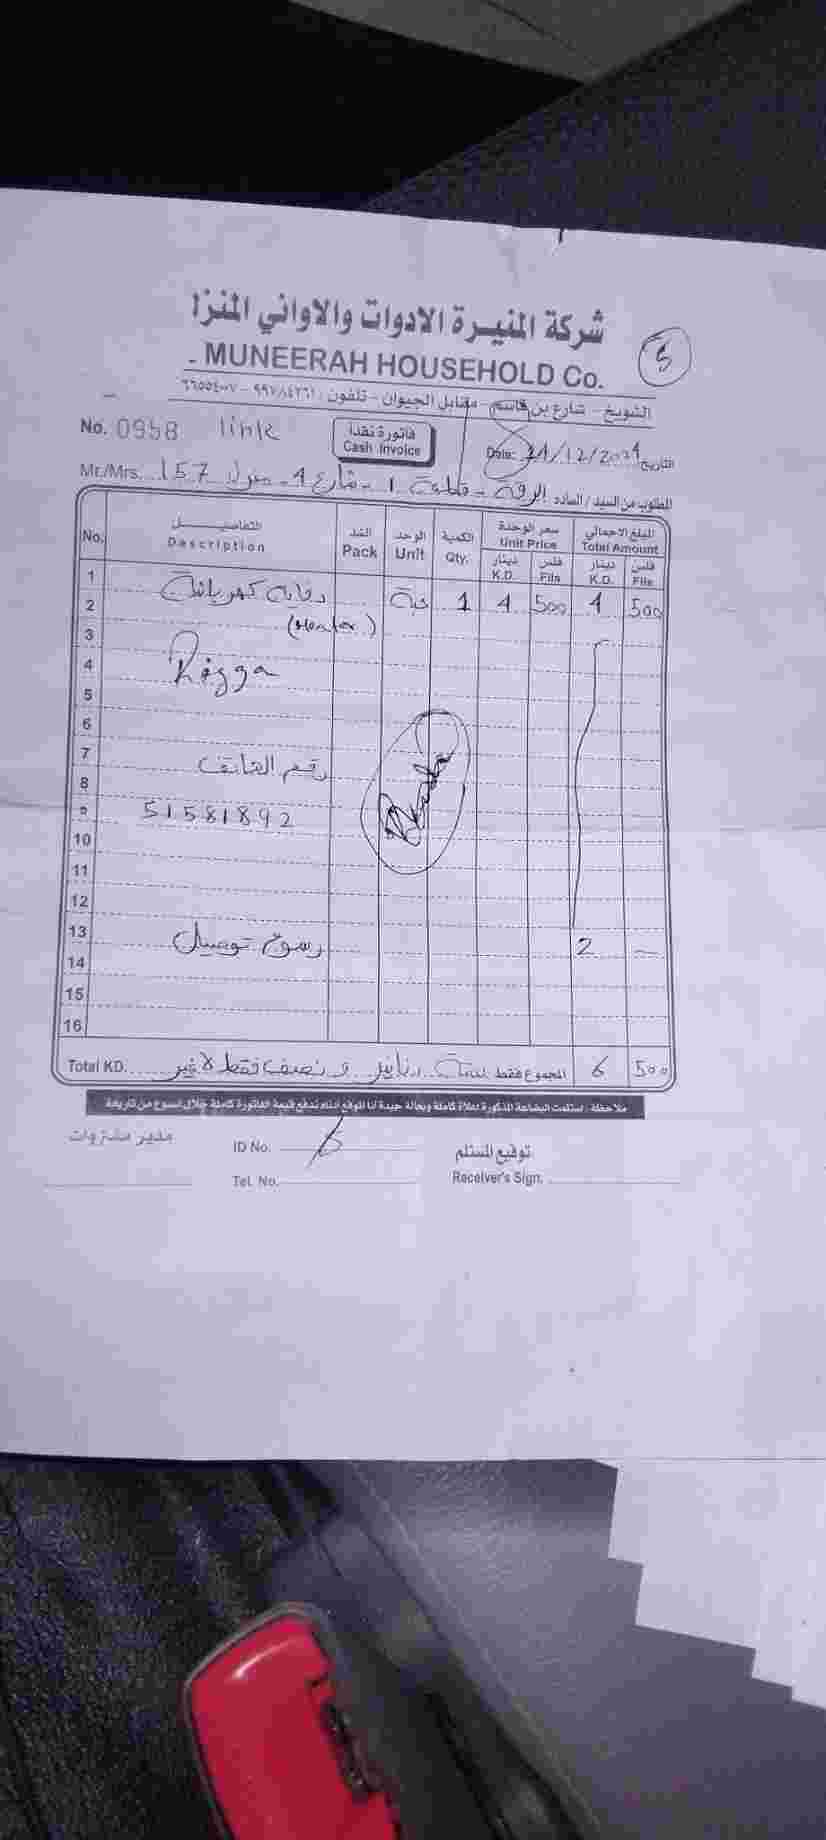 شركة المنيرة الادوات والاواني المنزل
MUNEERAH HOUSEHOLD Co.
5
الشويخ - شارع بن قاسم - مقابل الجيوان - تلفون : ٩٩٧٨٤٢٦١ - ٦٦٥٥٤٠٠٧
No. 0958 link
فاتورة نقداً
Cash Invoice
Date: 24/12/2024 التاريخ
Mr./Mrs. المطلوب من السيد / السادة الرقة - قطعة 1 - شارع 4 - منزل 157
No. التفاصيل الشد الوحد الكمية سعر الوحدة المبلغ الاجمالي
Description Pack Unit Qty. Unit Price Total Amount
دينار فلس دينار فلس
K.D. Fils K.D. Fils
1
2 دفاية كهربائية حبة 1 4 500 4 500
3 (Heater)
4 Rigga
5
6
7 رقم الهاتف
8
9 51581892
10
11
12
13 رسوم توصيل 2 —
14
15
16
Total KD. المجموع فقط ستة دنانير ونصف فقط لا غير 6 500
ملاحظة : استلمت البضاعة المذكورة اعلاه كاملة وبحالة جيدة انا الموقع ادناه ندفع قيمة الفاتورة كاملة خلال اسبوع من تاريخه
مدير مشتروات ID No. توقيع المستلم
Tel. No. Receiver's Sign.